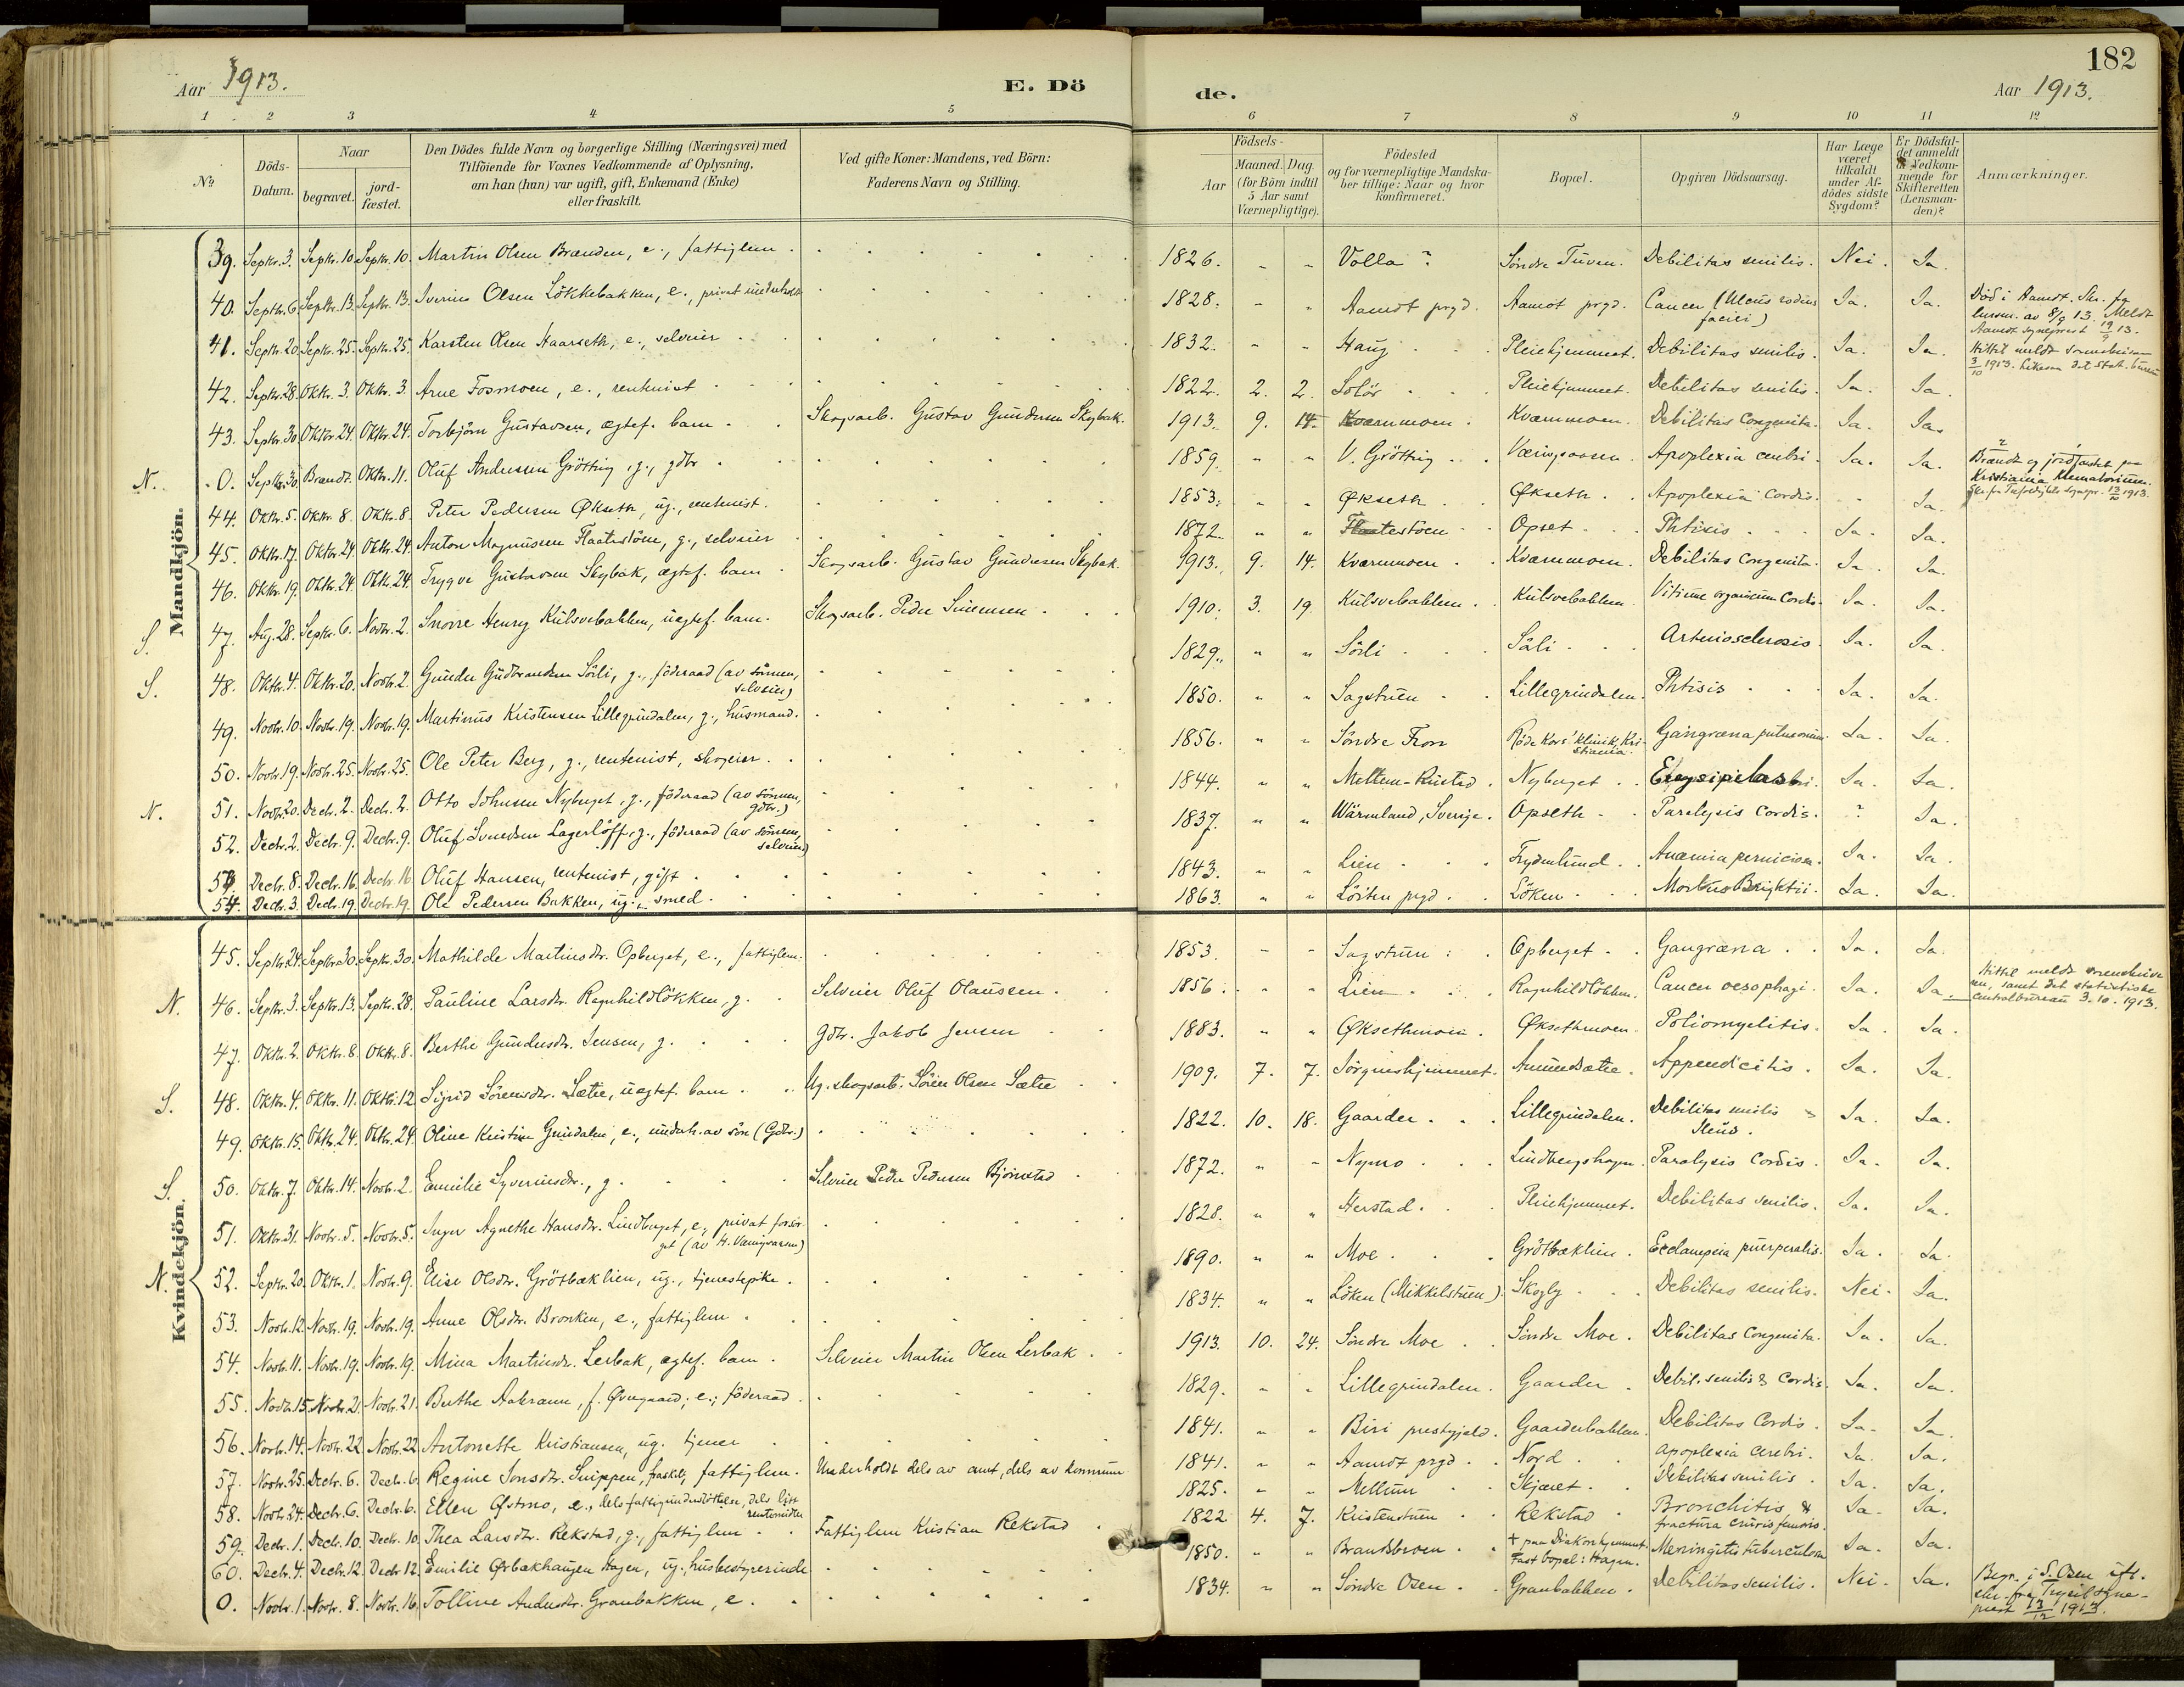 182
Aar 1913.
E. Dö
de.
Aar 1913.
1 2 3 4 5 6 7 8 9 10 11 12
No
Döds-Datum.
Naar
begravet.
jord-fæstet.
Den Dödes fulde Navn og borgerlige Stilling (Næringsvei) med
Tilföiende for Voxnes Vedkommende af Oplysning,
om han (hun) var ugift, gift, Enkemand (Enke)
eller fraskilt.
Ved gifte Koner: Mandens, ved Börn:
Faderens Navn og Stilling.
Födsels-
Aar
Maaned. Dag.
(for Börn indtil
5 Aar samt
Værnepligtige).
Födested
og for værnepligtige Mandska-
ber tillige: Naar og hvor
konfirmeret.
Bopæl.
Opgiven Dödsaarsag.
Har Læge
været
tilkaldt
under Af-
dödes sidste
Sygdom?
Er Dödsfal-
det anmeldt
af Vedkom-
mende for
Skifteretten
(Lensman-
den)?
Anmærkninger.
Mandkjön.
39. Septr. 3. Septr. 10. Septr. 10. Martin Olsen Brænden, e., fattiglem 1826. Volla ? Söndre Tuven. Debilitas senilis. Nei. Ja.
40. Septr. 6. Septr. 13. Septr. 13. Iverinus Olsen Lökkebakken, e., privat underholdt 1828. Aamot prgd. Aamot prgd. Cancer (Ulcus rodens faciei) Ja. Ja. Död i Aamot. Skr. fra lensm. av 8/9 13. Meldt Aamot sogneprest 19/9 13.
41. Septr. 20. Septr. 25. Septr. 25. Karsten Olsen Haarseth, e., selveier 1832. Haug Pleiehjemmet. Debilitas senilis. Ja. Ja. Hittil meldt sorenskriveren 3/10 1913. Likesaa det stat. bureau
42. Septr. 28. Oktr. 3. Oktr. 3. Arne Fosmoen, e., rentenist 1822. 2. 2. Solör Pleiehjemmet. Debilitas senilis. Ja. Ja.
43. Septr. 30. Oktr. 24. Oktr. 24. Torbjörn Gustavsen, ægtef. barn Skogsarb. Gustav Gundersen Skybak. 1913. 9. 14. Kværnmoen. Kværnmoen. Debilitas Congenita. Ja. Ja.
N. 0. Septr. 30. Brændt. Oktr. 11. Oluf Andersen Grötting, g., gdbr 1859. V. Grötting Væringsaasen. Apoplexia cerebri. Ja. Ja. Brændt og jordfæstet paa Kristiania Krematorium.
44. Oktr. 5. Oktr. 8. Oktr. 8. Peter Pedersen Økseth, ug., rentenist. 1853. Økseth. Økseth. Apoplexia Cordis. Ja.
45. Oktr. 17. Oktr. 24. Oktr. 24. Anton Magnussen Flaatestöen, g., selveier 1872. Flaatestöen Opset Phtisis Ja. Ja.
46. Oktr. 19. Oktr. 24. Oktr. 24. Trygve Gustavsen Skybak, ægtef. barn Skogsarb. Gustav Gundersen Skybak. 1913. 9. 14. Kværnmoen Kværnmoen. Debilitas Congenita. Ja. Ja.
S. 47. Aug. 28. Septr. 6. Novbr. 2. Snorre Henry Kulsvebakken, uægtef. barn. Skogsarb. Peder Simensen 1910. 3. 19. Kulsvebakken. Kulsvebakken. Vitium organicum Cordis. Ja. Ja.
S. 48. Oktr. 4. Oktr. 20. Novbr. 2. Gunder Gudbrandsen Sörli, g., föderaad (av sönnen, selveier) 1829. Sörli Sörli Arteriosclerosis. Ja. Ja.
49. Novbr. 10. Novbr. 19. Novbr. 19. Martinus Kristensen Lillegrindalen, g., husmand. 1850. Sagstuen Lillegrindalen. Phtisis Ja. Ja.
50. Novbr. 19. Novbr. 25. Novbr. 25. Ole Peter Berg, g., rentenist, skogeier. 1856. Söndre Fron Röde Kors' klinik, Kristiania. Gangræna pulmonum. Ja. Ja.
N. 51. Novbr. 20. Decbr. 2. Decbr. 2. Otto Johnsen Nyberget, g., föderaad (av sönnen, gdbr.) 1844. Mellem-Rustad Nyberget Erysipelas. Ja. Ja.
52. Decbr. 2. Decbr. 9. Decbr. 9. Oluf Svendsen Lagerlöff, g., föderaad (av sönnen, selveier) 1837. Wärmland, Sverige. Opseth Paralysis Cordis. ? Ja.
53. Decbr. 8. Decbr. 16. Decbr. 16. Oluf Hansen, rentenist, gift 1843. Lien Frydenlund. Anæmia perniciosa. Ja. Ja.
54. Decbr. 3. Decbr. 19. Decbr. 19. Ole Pedersen Bakken, ug., smed. 1863. Löiten prgd. Löken Morbus Brightii. Ja. Ja.
Kvindekjön.
45. Septr. 24. Septr. 30. Septr. 30. Mathilde Martinsdtr. Opberget, e., fattiglem. 1853. Sagstuen Opberget Gangræna Ja. Ja.
N. 46. Septr. 3. Septr. 13. Septr. 28. Pauline Larsdtr. Ragnhildlökken, g. Selveier Oluf Olaussen. 1856. Lien Ragnhildlökken. Cancer oesophagi. Ja. Ja. Hittil meldt sorenskriveren, samt det statistiske centralbureau 3.10.1913.
47. Oktr. 2. Oktr. 8. Oktr. 8. Berthe Gundersdtr. Jensen, g. Gdbr. Jakob Jensen 1883. Øksethmoen. Øksethmoen. Poliomyelitis. Ja. Ja.
S. 48. Oktr. 4. Oktr. 11. Oktr. 12. Sigrid Sörensdtr. Sætre, uægtef. barn Ug. skogsarb. Sören Olsen Sætre 1909. 7. 7. Jörgenshjemmet. Amundsætre. Appendicitis. Ja. Ja.
49. Oktr. 15. Oktr. 24. Oktr. 24. Oline Kristine Grindalen, e., underh. av sön (Gdbr.) 1822. 10. 18. Gaarder Lillegrindalen. Debilitas senilis Ileus. Ja. Ja.
S. 50. Oktr. 7. Oktr. 14. Novbr. 2. Emilie Syverinsdtr., g. Selveier Peder Pedersen Björnstad 1872. Nymo Lindbergshagen. Paralysis Cordis. Ja. Ja.
51. Oktr. 31. Novbr. 5. Novbr. 5. Inger Agnethe Hansdtr. Lindberget, e., privat forsörget (av H. Væringsaasen) 1828. Herstad. Pleiehjemmet. Debilitas senilis. Ja. Ja.
N. 52. Septr. 20. Oktr. 1. Novbr. 9. Elise Olsdtr. Grötbæklien, ug., tjenestepike. 1890. Moe Grötbæklien. Ecclampsia puerperalis. Ja. Ja.
53. Novbr. 12. Novbr. 19. Novbr. 19. Anne Olsdtr. Bronken, e., fattiglem 1834. Löken (Mikkelstuen). Skogly Debilitas senilis. Nei. Ja.
54. Novbr. 11. Novbr. 19. Novbr. 19. Mina Martinsdtr. Lerbak, ægtef. barn. Selveier Martin Olsen Lerbak 1913. 10. 24. Söndre Moe Söndre Moe. Debilitas Congenita. Ja. Ja.
55. Novbr. 15. Novbr. 21. Novbr. 21. Berthe Aakrann, f. Øvergaard; e.; föderaad. 1829. Lillegrindalen. Gaarder Debil. senilis & Cordis. Ja. Ja.
56. Novbr. 14. Novbr. 22. Novbr. 22. Antonette Kristiansen, ug. tjener 1841. Biri prestegjeld. Gaarderbakken. Debilitas Cordis Ja. Ja.
57. Novbr. 25. Decbr. 6. Decbr. 6. Regine Jonsdtr. Snippen, fraskilt, fattiglem. Underholdt dels av amt, dels av kommun 1841. Aamot prgd. Nord Apoplexia Cerebri. Ja. Ja.
58. Novbr. 24. Decbr. 6. Decbr. 6. Ellen Østmo, e., dels fattigunderstöttelse, dels litt rentemidler 1825. Mellum Skjæret Debilitas senilis. Ja. Ja.
59. Decbr. 1. Decbr. 10. Decbr. 10. Thea Larsdtr. Rekstad, g., fattiglem Fattiglem Kristian Rekstad 1822. 4. 7. Kristenstuen Rekstad Bronchitis & fractura cruris femoris. Ja. Ja.
60. Decbr. 4. Decbr. 12. Decbr. 12. Emilie Ørbækhaugen Hagen, ug., husbestyrerinde 1850. Brandsbroen † paa Diakonhjemmet. Fast bopæl: Hagen. Meningitis tuberculosa Ja. Ja.
0. Novbr. 1. Novbr. 8. Novbr. 16. Tolline Andersdtr. Granbakken, e. 1834. Söndre Osen Granbakken. Debilitas senilis. Nei. Ja. Begr. i S. Osen ifl. skr. fra Trysil sogneprest 13/12 1913.